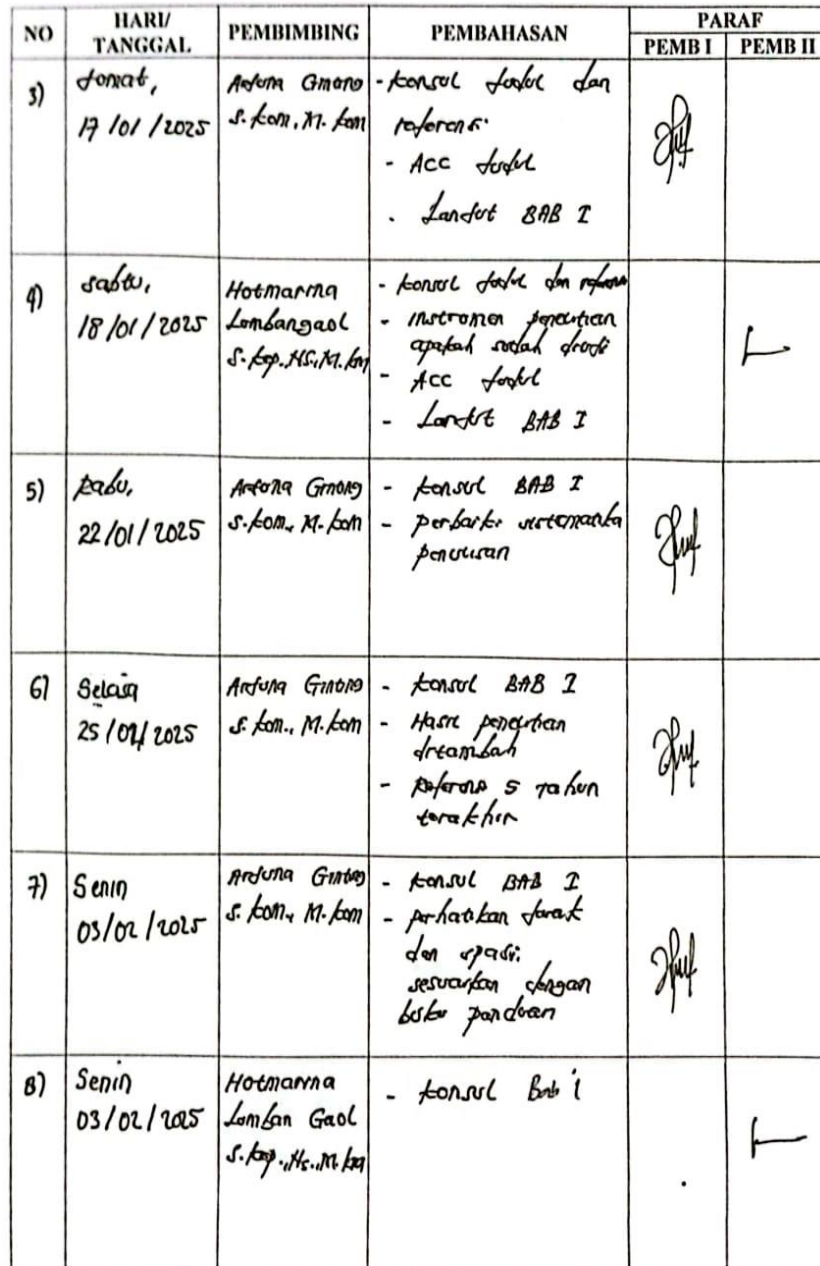 NO HARI/ TANGGAL PEMBIMBING PEMBAHASAN PARAF
PEMB I PEMB II
3) Jumat, 17/01/2025
Arjuna Ginting S.kom, M.kom
- konsul judul dan referensi
- ACC judul
- Lanjut BAB I
4) Sabtu, 18/01/2025
Hotmarina Lumbangaol S.kep., Ns., M.km
- konsul judul dan referensi
- Instrumen penelitian apakah sudah diuji
- ACC judul
- Lanjut BAB I
5) Rabu, 22/01/2025
Arjuna Ginting S.kom., M.kom
- konsul BAB I
- perbaiki sistematika penulisan
6) Selasa 25/01/2025
Arjuna Ginting S.kom., M.kom
- konsul BAB I
- Hasil penelitian ditambah
- Referensi 5 tahun terakhir
7) Senin 03/02/2025
Arjuna Ginting S.kom., M.kom
- konsul BAB I
- perhatikan jarak dan spasi. sesuaikan dengan buku panduan
8) Senin 03/02/2025
Hotmarina Lumban Gaol S.kep., Ns., M.km
- konsul Bab i